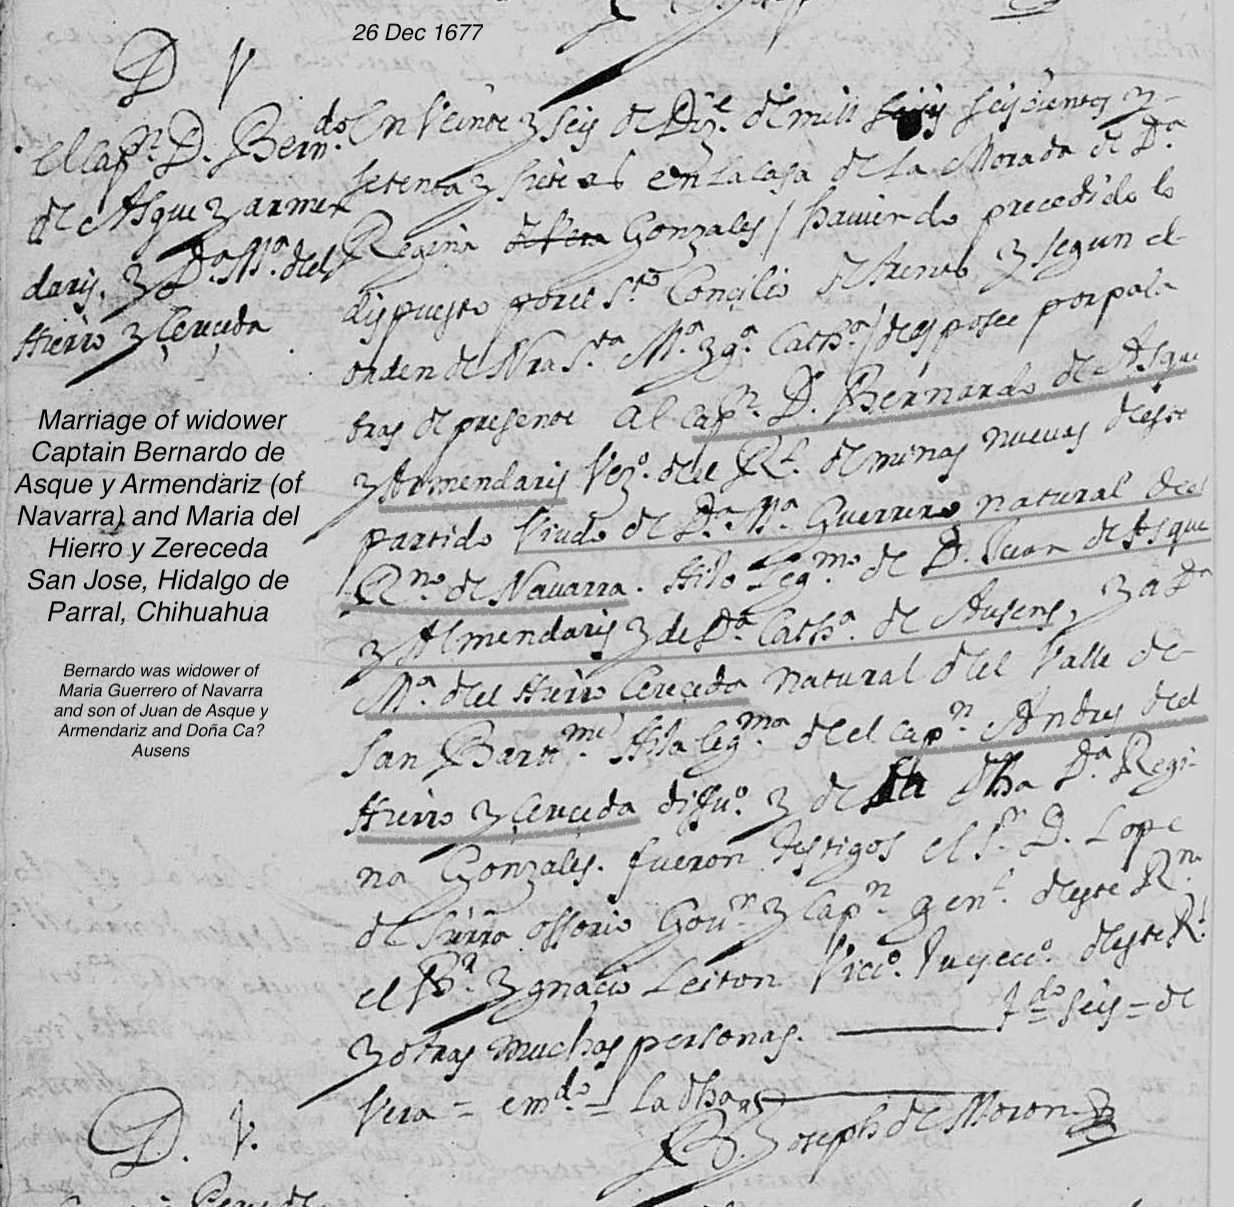 26 Dec 1677
D V
El Capn. D. Berndo.
de Asque y armen
daris, y Da. Ma. del
Hierro y Çereçeda
Marriage of widower
Captain Bernardo de
Asque y Armendariz (of
Navarra) and Maria del
Hierro y Zereceda
San Jose, Hidalgo de
Parral, Chihuahua
Bernardo was widower of
Maria Guerrero of Navarra
and son of Juan de Asque y
Armendariz and Doña Ca?
Ausens
En Veinte y seis de Dize. de mill seis seiscientos y
setenta y siete as en la casa de la Morada de Da.
Regina de Vera Gonzales / haviendo precedido lo
dispuesto por el Sto. Concilio de trento y segun el
orden de Nra Sta. Me. yga. Catha. / desposee por pala
bras de presente al Capn. D. Bernardo de Asque
y Armendaris Vezo. de el Rl. de minas nuevas deste
partido Viudo de Da. Ma. Guerrero natural del
Rno. de Navarra. Hijo Legmo. de D. Juan de Asque
y Almendaris y de Da. Catha. de Ausens, y a Da
Ma. del Hierro Cereçeda natural del Valle de
San Bartme. Hija legma. de el Capn Andres del
Hierro y Çereçeda difuo. y de la dha Da. Regi-
na Gonzales. fueron testigos el Sr. D. Lope
de Sierra ossorio Govr. y Capn. genl. deste Rno.
el Br. Ygnacio Leiton Vicco. Juezecco. deste Rl.
y otras muchas personas. tdo seis = de
Vera = emdo. = La dha
Br. Joseph de Moron
D. V.